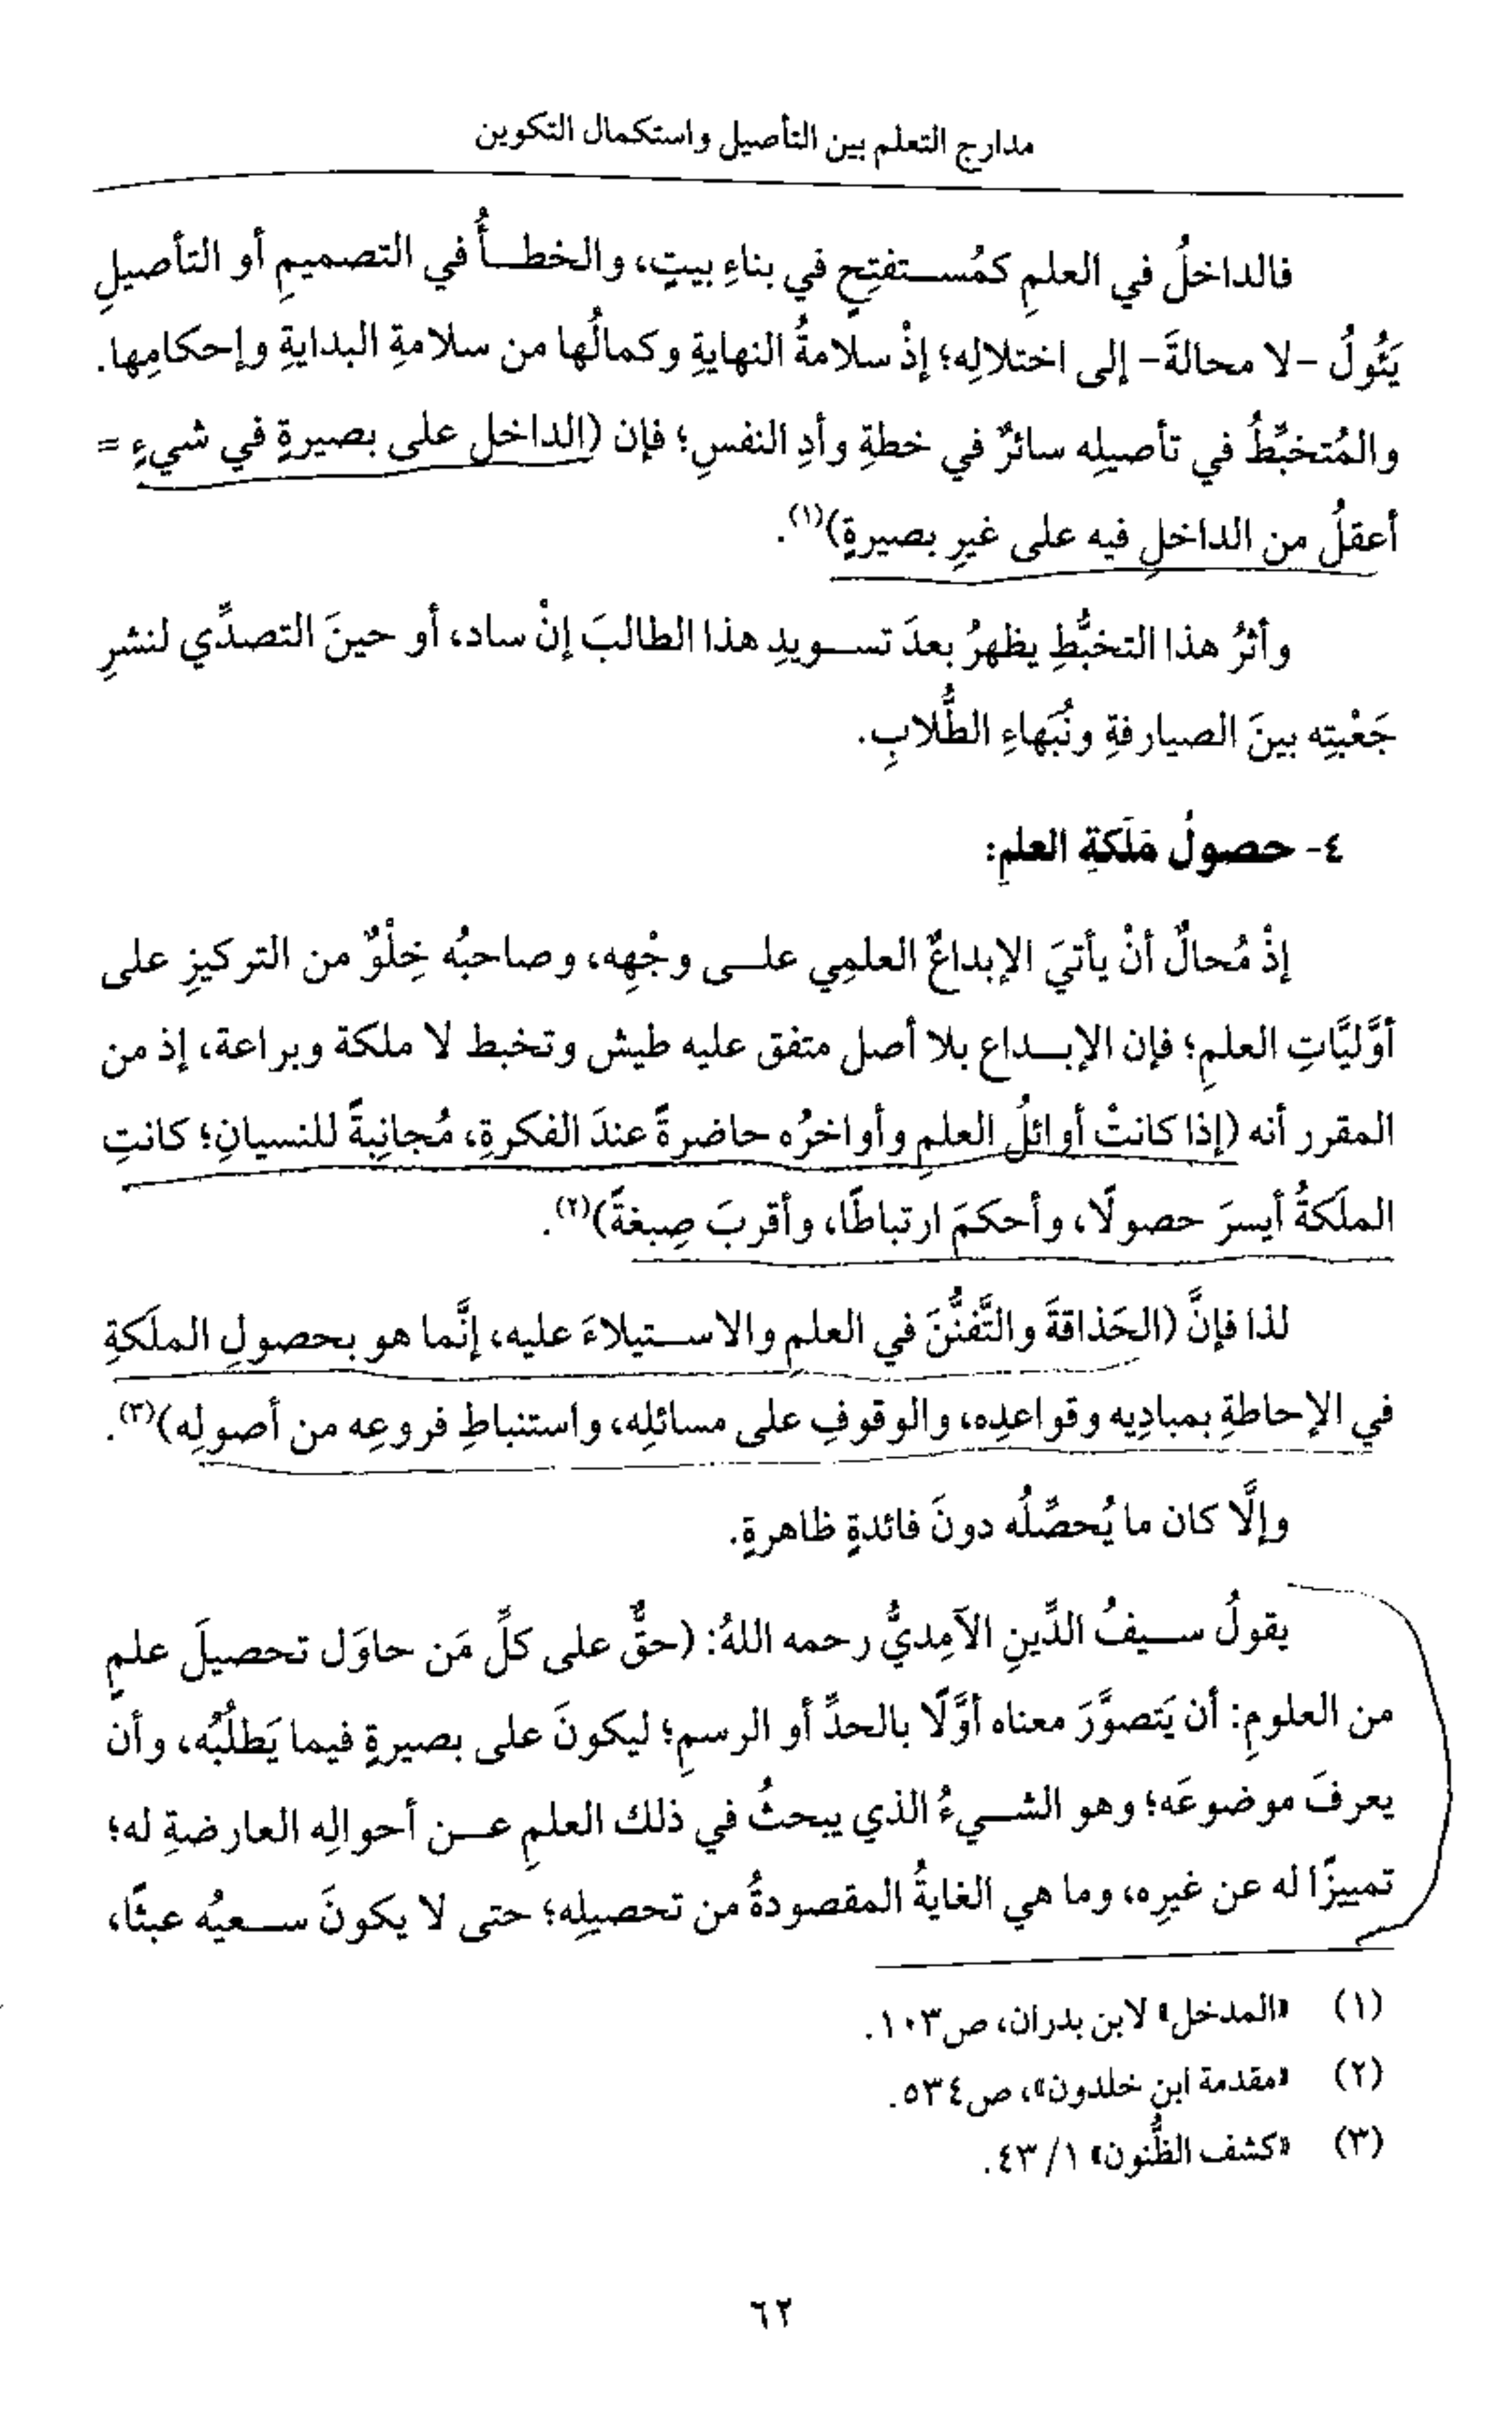 مدارج التعلم بين التأصيل واستكمال التكوين
فالداخلُ في العلمِ كمُستفتِحٍ في بناءِ بيتٍ، والخطأُ في التصميمِ أو التأصيلِ
يَئُولُ -لا محالةَ- إلى اختلالِه؛ إذْ سلامةُ النهايةِ وكمالُها من سلامةِ البدايةِ وإحكامِها.
والمُتخبِّطُ في تأصيلِه سائرٌ في خطةِ وأدِ النفسِ؛ فإن (الداخل على بصيرةٍ في شيءٍ =
أعقلُ من الداخلِ فيه على غيرِ بصيرةٍ)(١).
وأثرُ هذا التخبُّطِ يظهرُ بعدَ تسويدِ هذا الطالبَ إنْ ساد، أو حينَ التصدِّي لنشرِ
جَعْبتِه بينَ الصيارفةِ ونُبَهاءِ الطُّلابِ.
٤- حصولُ مَلَكةِ العلمِ:
إذْ مُحالٌ أنْ يأتيَ الإبداعُ العلمِي على وجْهِه، وصاحبُه خِلْوٌ من التركيزِ على
أوَّليَّاتِ العلمِ؛ فإن الإبداع بلا أصل متفق عليه طيش وتخبط لا ملكة وبراعة، إذ من
المقرر أنه (إذا كانتْ أوائلُ العلمِ وأواخرُه حاضرةً عندَ الفكرةِ، مُجانِبةً للنسيانِ؛ كانتِ
الملَكةُ أيسرَ حصولًا، وأحكمَ ارتباطًا، وأقربَ صِبغةً)(٢).
لذا فإنَّ (الحَذاقةَ والتَّفنُّنَ في العلمِ والاستيلاءَ عليه، إنَّما هو بحصولِ الملَكةِ
في الإحاطةِ بمبادِيه وقواعدِه، والوقوفِ على مسائلِه، واستنباطِ فروعِه من أصولِه)(٣).
وإلَّا كان ما يُحصِّلُه دونَ فائدةٍ ظاهرةٍ.
يقولُ سيفُ الدِّينِ الآمِديُّ رحمه اللهُ: (حقٌّ على كلِّ مَن حاوَل تحصيلَ علمٍ
من العلومِ: أن يَتصوَّرَ معناه أوَّلًا بالحدِّ أو الرسمِ؛ ليكونَ على بصيرةٍ فيما يَطلُبُه، وأن
يعرفَ موضوعَه؛ وهو الشيءُ الذي يبحثُ في ذلك العلمِ عن أحوالِه العارضةِ له؛
تمييزًا له عن غيرِه، وما هي الغايةُ المقصودةُ من تحصيلِه؛ حتى لا يكونَ سعيُه عبثًا،
(١) «المدخل» لابن بدران، ص١٠٣.
(٢) «مقدمة ابن خلدون»، ص٥٣٤.
(٣) «كشف الظُّنون» ١/ ٤٣.
٦٢